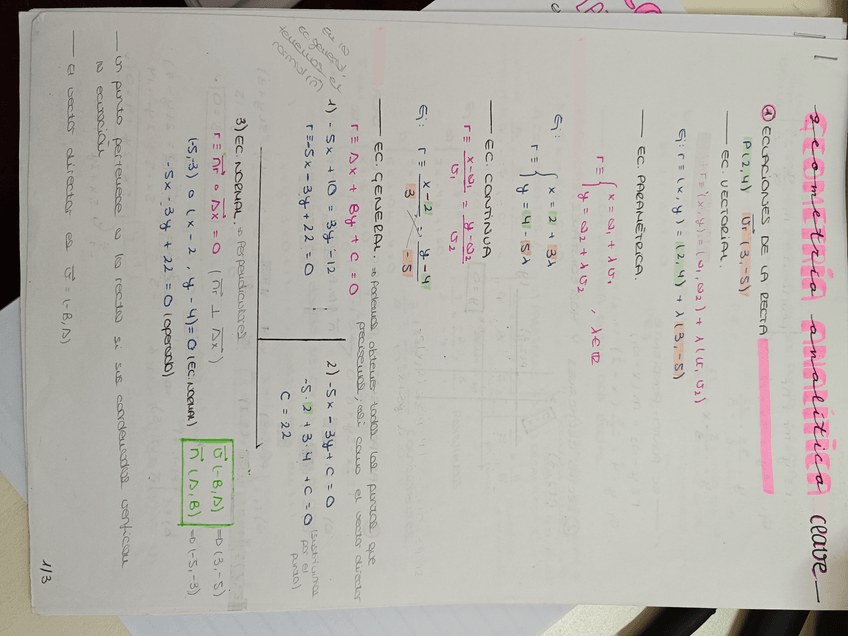 geometría analítica clave
① ECUACIONES DE LA RECTA
P(2,4) v⃗r (3,-5)
— EC. VECTORIAL.
r ≡ (x,y) = (a₁, a₂) + λ (v₁, v₂)
Ej: r ≡ (x,y) = (2,4) + λ (3,-5)
— EC. PARAMÉTRICA.
r ≡ { x = a₁ + λ v₁
y = a₂ + λ v₂ , λ ∈ ℝ
Ej: r ≡ { x = 2 + 3λ
y = 4 - 5λ
— EC. CONTÍNUA
r ≡ x-a₁ / v₁ = y-a₂ / v₂
Ej: r ≡ x-2 / 3 = y-4 / -5
— EC. GENERAL. ⇒ Podemos obtener todos los puntos que
precisemos, así como el vector director
r ≡ Ax + By + C = 0
En la
ec. general,
tenemos el
normal (n⃗)
1) -5x + 10 = 3y - 12
r ≡ -5x - 3y + 22 = 0
2) -5x - 3y + C = 0
-5·2 + 3·4 + C = 0 (sustituir por el punto)
C = 22
3) EC. NORMAL. ⇒ Perpendiculares
r ≡ n⃗r ∘ Δx = 0 (n⃗r ⊥ Δx)
(-5,3) ∘ (x-2, y-4) = 0 (EC. NORMAL)
-5x - 3y + 22 = 0 (operando)
v⃗ (-B,A) ⇒ (3,-5)
n⃗ (A,B) ⇒ (-5,-3)
— Un punto pertenece a la recta si sus coordenadas verifican
la ecuación.
— El vector director es v⃗ = (-B,A)
1/3